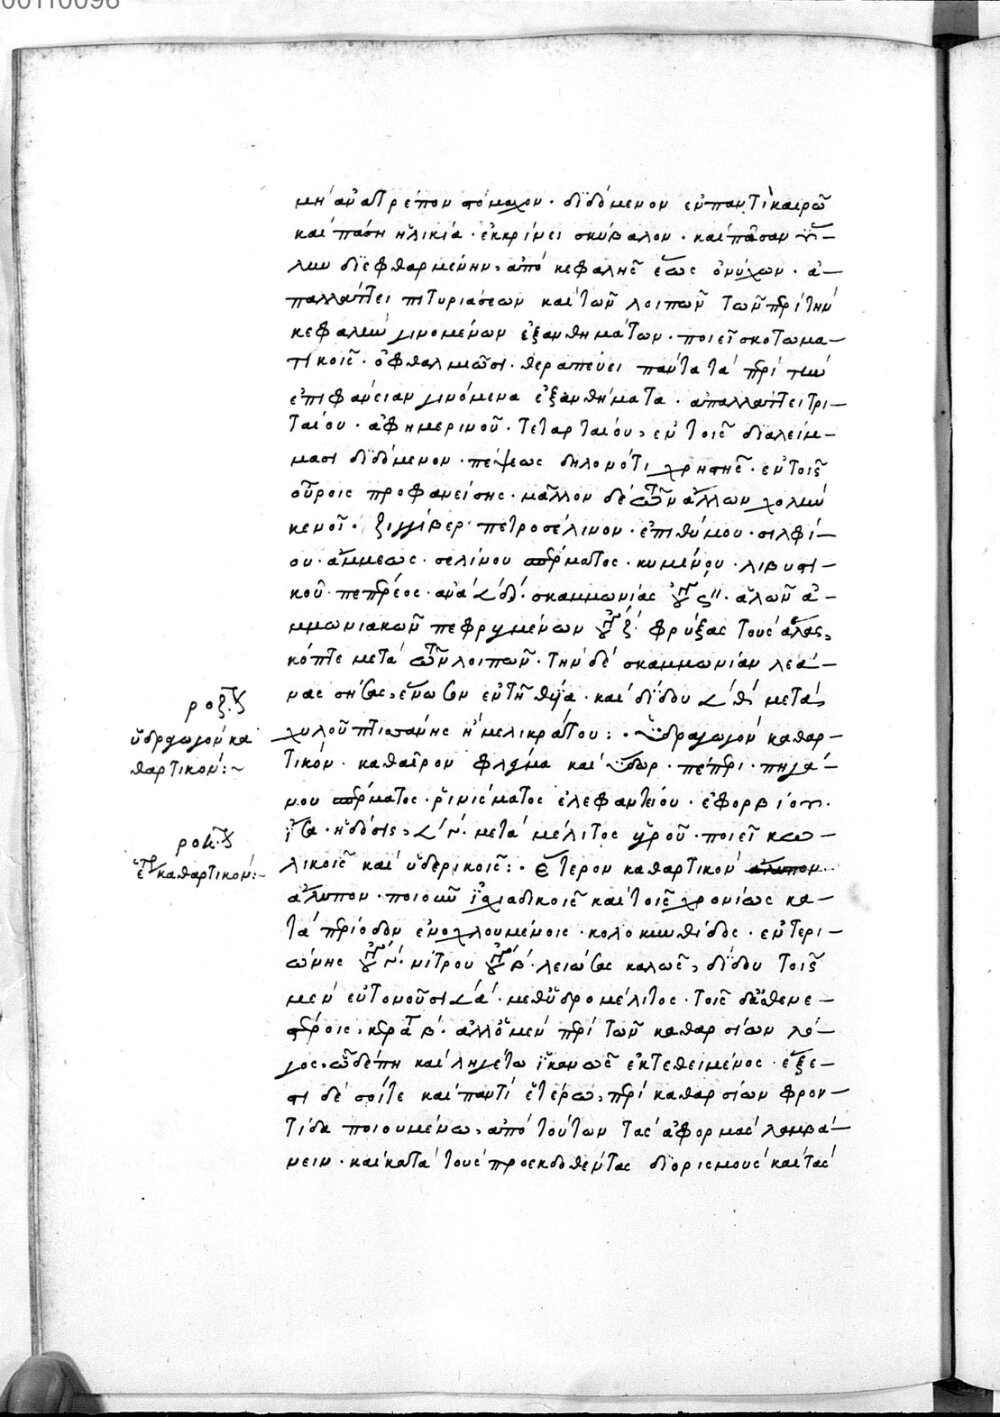 00110096
μὴ ἀνατρέπον στόμαχον· διδόμενον ἐν παντὶ καιρῶ
καὶ πάση ἡλικία· ἐκκρίνει σκύβαλον· καὶ πᾶσαν ὕ-
λην διεφθαρμένην, ἀπὸ κεφαλῆς ἕως ὀνύχων· ἀ-
παλλάττει πιτυριάσεων καὶ τῶν λοιπῶν τῶν περὶ τὴν
κεφαλὴν γινομένων ἐξανθημάτων· ποιεῖ σκοτωμα-
τικοῖς· ὀφθαλμῶσι· θεραπεύει πάντα τὰ περὶ τὴν
ἐπιφάνειαν γινόμενα ἐξανθήματα· ἀπαλλάττει τρι-
ταίου· ἀφημερινοῦ· τεταρταίου, ἐν τοῖς διαλείμ-
μασι διδόμενον· πέψεως δηλονότι χρηστῆς· ἐν τοῖς
οὔροις προφανείσης· μᾶλλον δὲ τῶν ἄλλων χολὴν
κενοῖ· ζιγγίβερ· πετροσέλινον· ἐπιθύμου· σιλφί-
ου· ἄμμεως· σελίνου σπέρματος· κυμίνου· λιβυστι-
κοῦ· πεπέρεος· ἀνὰ σκαμμωνίας ἁλῶν ἀ-
μμωνιακῶν πεφρυμένων φρύξας τοὺς ἅλας,
κόπτε μετὰ τῶν λοιπῶν· τὴν δὲ σκαμμωνίαν λεά-
νας σήσας, ἕνωσον ἐν τῆ θυία· καὶ δίδου μετὰ
ροζον
χυλοῦ πτισάνης ἢ μελικράτου: · ὑδραγωγὸν καθαρ-
ὑδραγωγὸν κα
τικόν· καθαῖρον φλέγμα καὶ ὕδωρ· πέπερι· πηγά-
θαρτικόν:~
νου σπέρματος· ῥινίσματος ἐλεφαντείου· εὐφορβίου·
ἡ δόσις, μετὰ μέλιτος ποιεῖ κω-
λικοῖς καὶ ὑδερικοῖς: · ἕτερον καθαρτικὸν ἄλυπον
καθαρτικόν:~
ἄλυπον· ποιοῦν ἰσχιαδικοῖς καὶ τοῖς χρονίως κα-
τὰ περίοδον ἐνοχλουμένοις· κολοκυνθίδος· ἐντερι-
ώνης νίτρου λειώσας καλῶς, δίδου τοῖς
μὲν εὐτονοῦσι μεθ' ὑδρομέλιτος· τοῖς δὲ ἀσθενε-
στέροις, β· ἀλλ' ὁ μὲν περὶ τῶν καθαρσίων λό-
γος, ὧδέ πη καὶ ληγέτω ἱκανῶς ἐκτεθειμένος· ἔξε-
στι δὲ σοί τε καὶ παντὶ ἑτέρω, περὶ καθαρσίων φρον-
τίδα ποιουμένω, ἀπὸ τούτων τὰς ἀφορμὰς λαμβά-
νειν· καὶ κατὰ τοὺς προεκδοθέντας διορισμοὺς καὶ τὰς